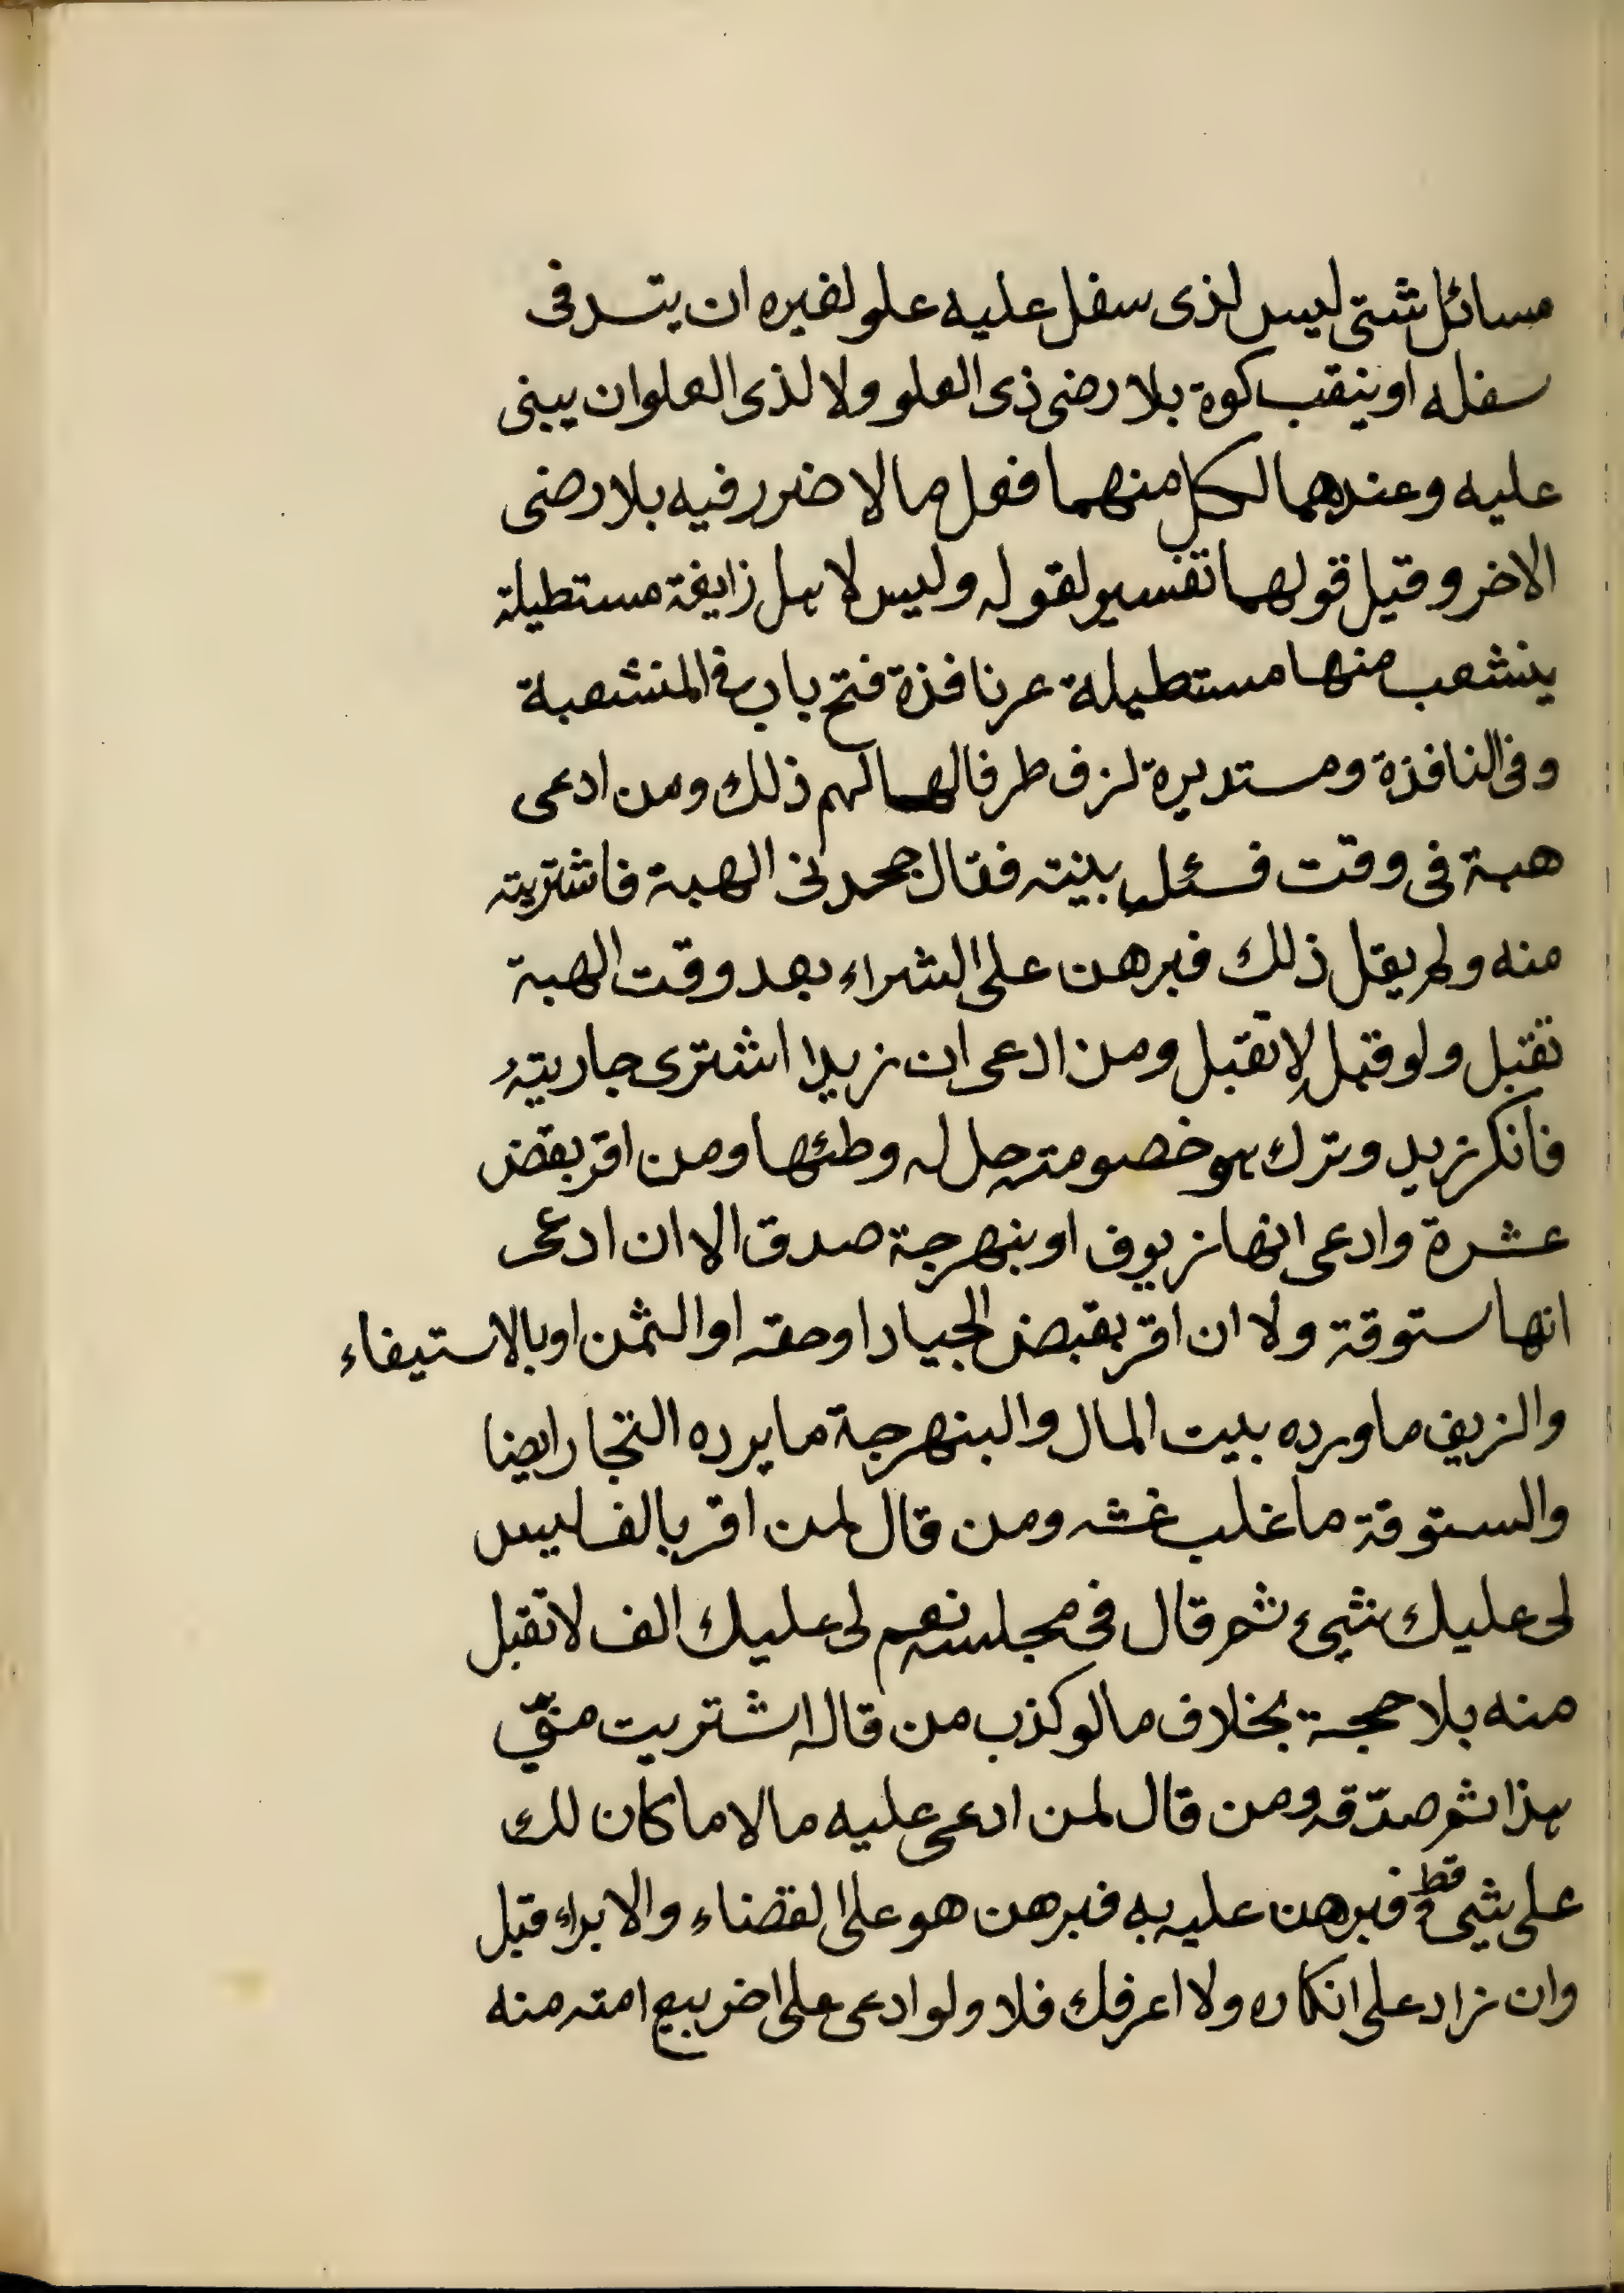 مسائل شتى ليس لذى سفل عليه علو لغيره ان يتد فى
سفله او ينقب كوة بلا رضى ذى العلو ولا لذى العلو ان يبنى
عليه وعندهما لكل منهما فعل ما لا ضرر فيه بلا رضى
الاخر وقيل قولهما تفسير لقوله وليس لاهل زايغة مستطيلة
ينشعب منها مستطيلة غر نافذة فتح باب فى المنشعبة
وفى النافذة ومستديرة لزف طرفاها لهم ذلك ومن ادعى
هبة فى وقت فسئل بينته فقال جحدنى الهبة فاشتريته
منه ولم يقل ذلك فبرهن على الشراء بعد وقت الهبة
تقبل ولو قبل لا تقبل ومن ادعى ان زيدا اشترى جاريته
فانكر زيد وترك هو خصومته حل له وطئها ومن اقر بقض
عشرة وادعى انها زيوف او بنهرجة صدق الا ان ادعى
انها ستوقة ولا ان اقر بقبض الجياد او حقه او الثمن او بالاستيفاء
والزيف ما ورده بيت المال والبنهرجة ما يرده التجار ايضا
والستوقة ما غلب غشه ومن قال لمن اقر بالف ليس
لى عليك شئ ثم قال فى مجلسه نعم لى عليك الف لا تقبل
منه بلا حجة بخلاف ما لو كذب من قال له اشتريت منّي
هذا ثم صدّقه ومن قال لمن ادعى عليه مالا ما كان لك
على شئ قط فبرهن عليه به فبرهن هو على القضاء والابراء قبل
وان زاد على انكاره ولا اعرفك فلا ولو ادعى على اخر بيع امته منه